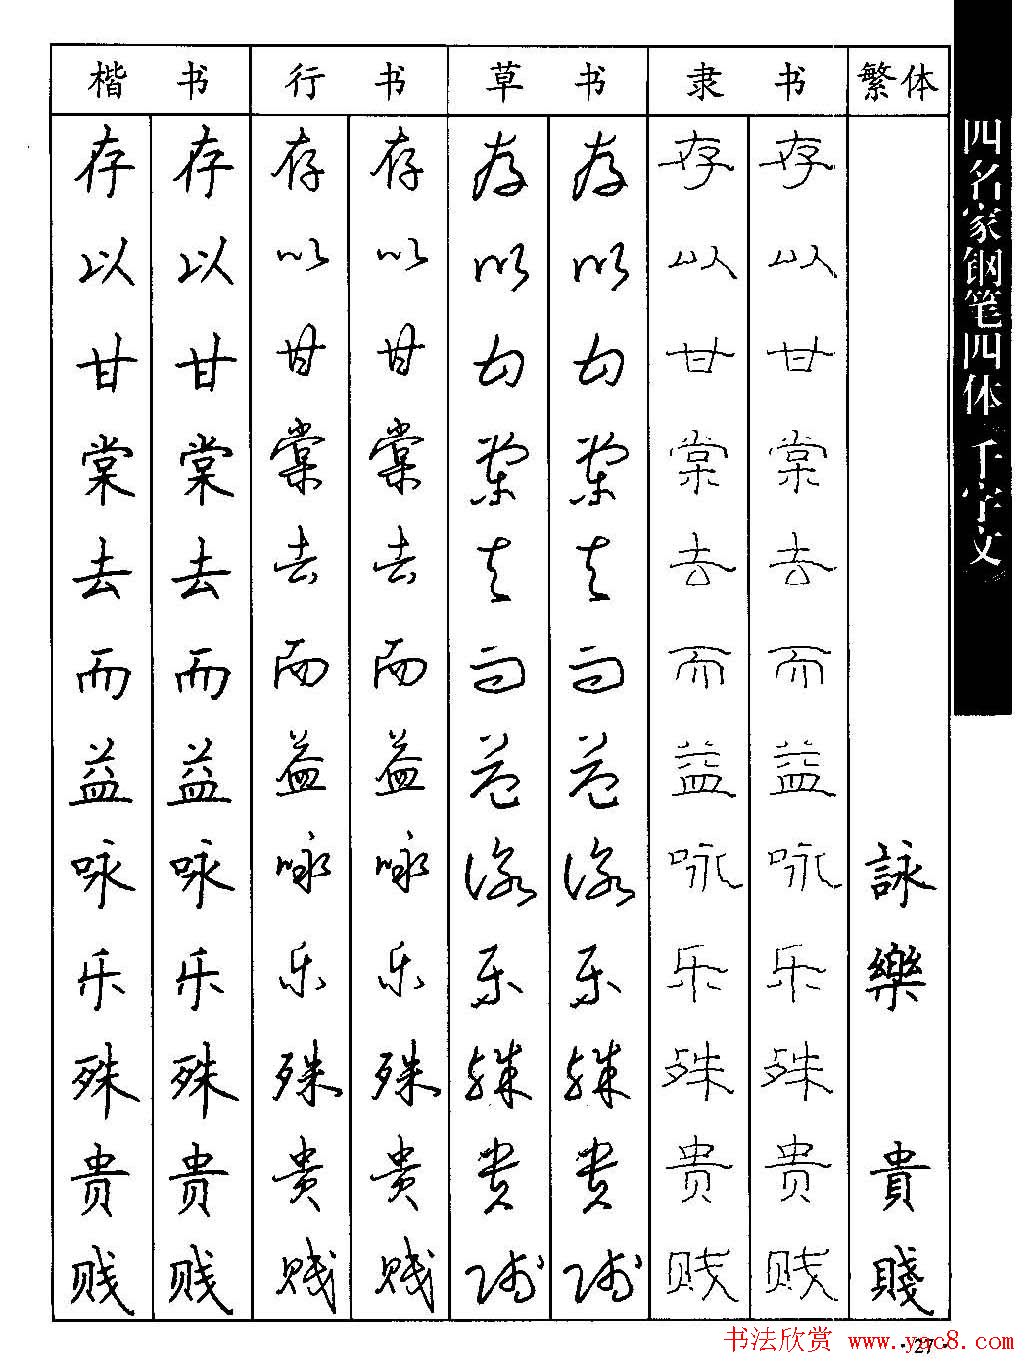 楷 书 行 书 草 书 隶 书 繁体
存 存 存 存 存 存 存 存
以 以 以 以 以 以 以 以
甘 甘 甘 甘 甘 甘 甘 甘
棠 棠 棠 棠 棠 棠 棠 棠
去 去 去 去 去 去 去 去
而 而 而 而 而 而 而 而
益 益 益 益 益 益 益 益
咏 咏 咏 咏 詠 詠 咏 咏 詠
乐 乐 乐 乐 乐 乐 乐 乐 樂
殊 殊 殊 殊 殊 殊 殊 殊
贵 贵 贵 贵 贵 贵 贵 贵 貴
贱 贱 贱 贱 贱 贱 贱 贱 賤
四名家钢笔四体 千字文
·27·
书法欣赏 www.yac8.com